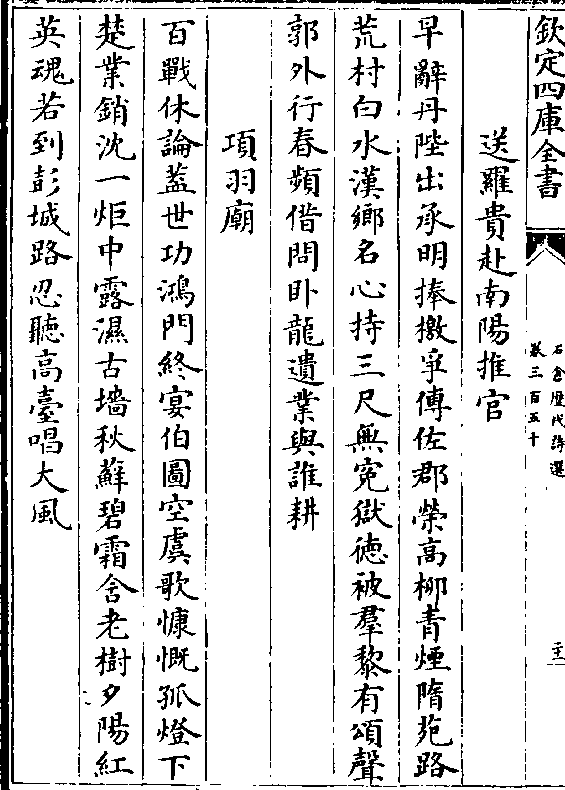 欽定四庫全書
石倉歴代詩選
卷三百五十
送羅貴赴南陽推官
早辭丹陛出承明捧檄爭傳佐郡榮高柳青煙隋苑路
荒村白水漢鄉名心持三尺無寃獄德被羣黎有頌聲
郭外行春頻借問卧龍遺業與誰耕
項羽廟
百戰休論蓋世功鴻門終宴伯圖空虞歌慷慨孤燈下
楚業銷沈一炬中露濕古墻秋蘚碧霜含老樹夕陽紅
英魂若到彭城路忍聽高臺唱大風